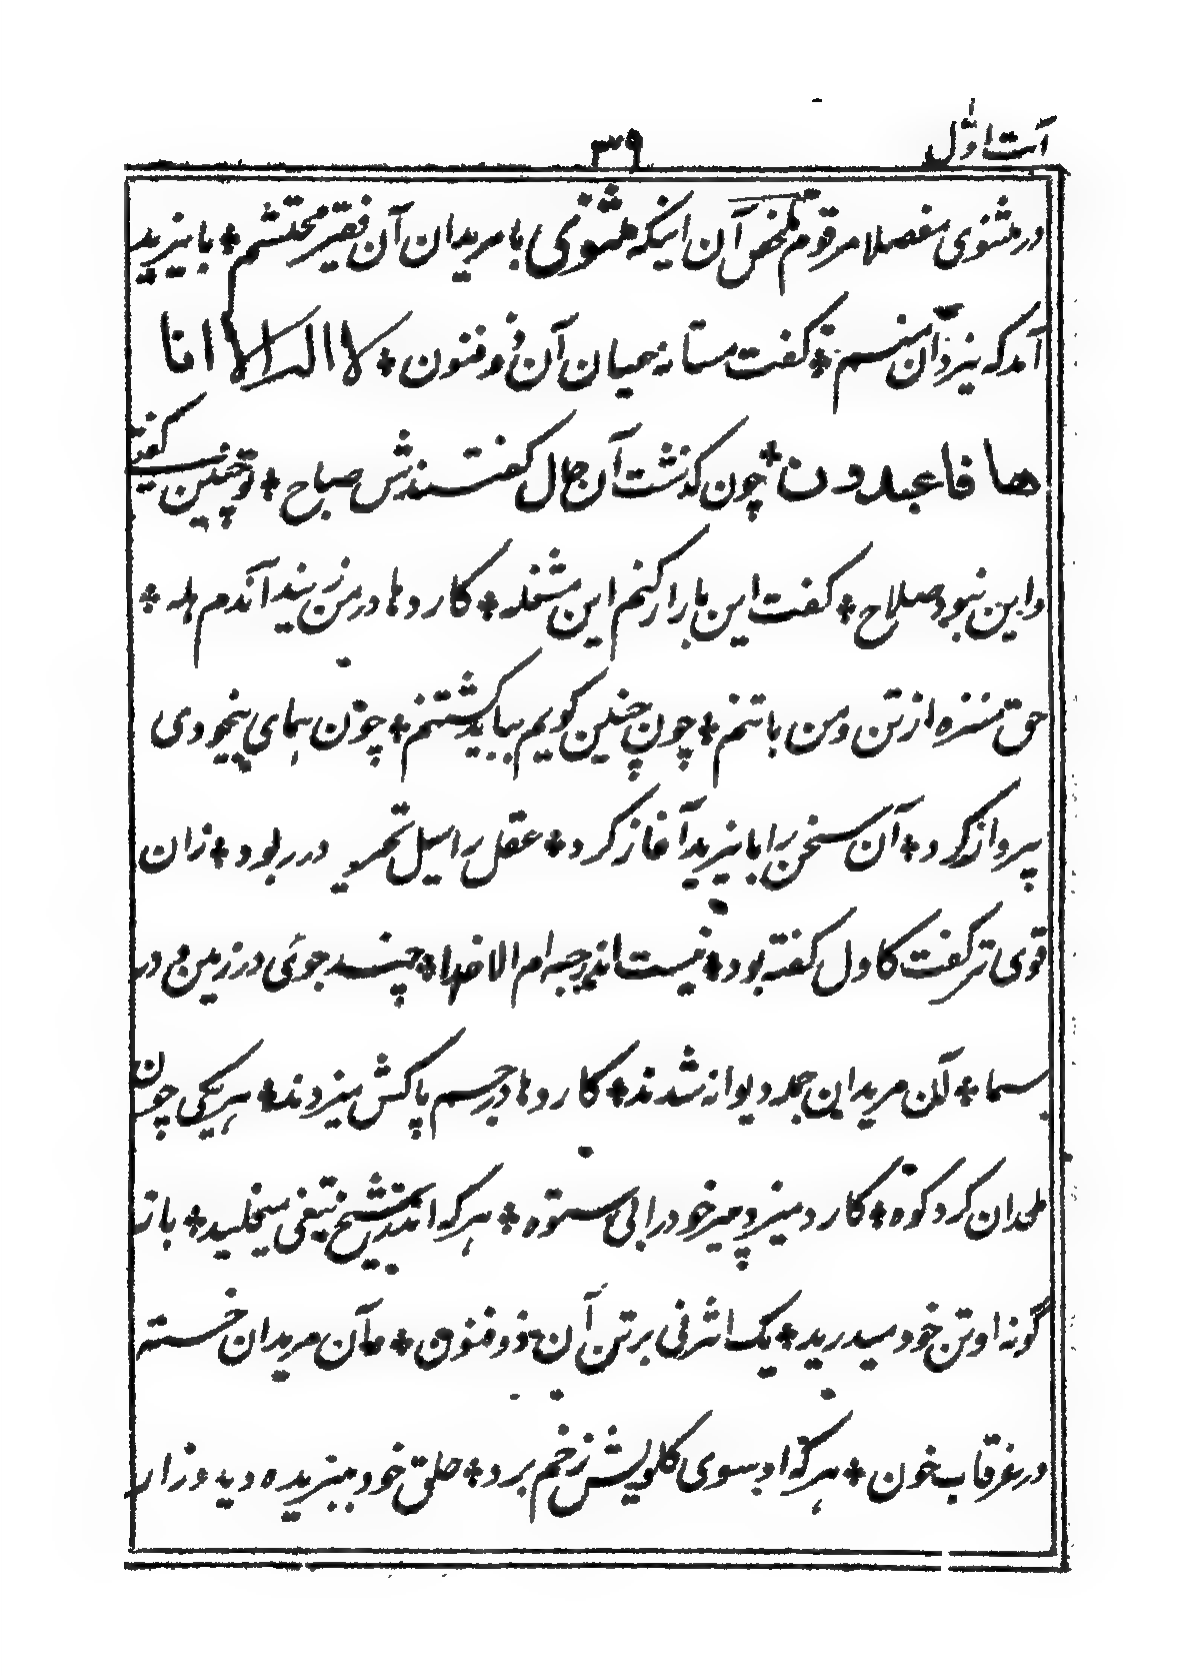 آیت اول
۳۹
در مثنوی مفصلا مرقوم ملخص آن اینکه مثنوی با مریدان آن فقیر محتشم * بایزید
آمد که یزدان منم * گفت مستانه عیان آن ذوفنون * لا اله الا انا
ها فاعبدون * چون گذشت آن حال گفتندش صباح * تو چنین گفتی
و این نبود صلاح * گفت این بار ار کنم این مشغله * کاردها در من زنید آندم هله *
حق منزه از تن و من با تنم * چون چنین گویم بباید کشتنم * چون همای بیخودی
پرواز کرد * آن سخن را بایزید آغاز کرد * عقل را سیل تحیر در ربود * زان
قوی تر گفت کاول گفته بود * نیست اندر جبه ام الا خدا * چند جوئی در زمین و در
سما * آن مریدان جمله دیوانه شدند * کاردها در جسم پاکش میزدند * هر یکی چون
ملحدان کرد کوه * کارد میزد پیر خود را بی ستوه * هر که اندر شیخ تیغی میخلید * باز
گونه او تن خود میدرید * یک اثر نی بر تن آن ذوفنون * و آن مریدان خسته
در غرقاب خون * هر که او سوی گلویش زخم برد * حلق خود ببریده دید و زار